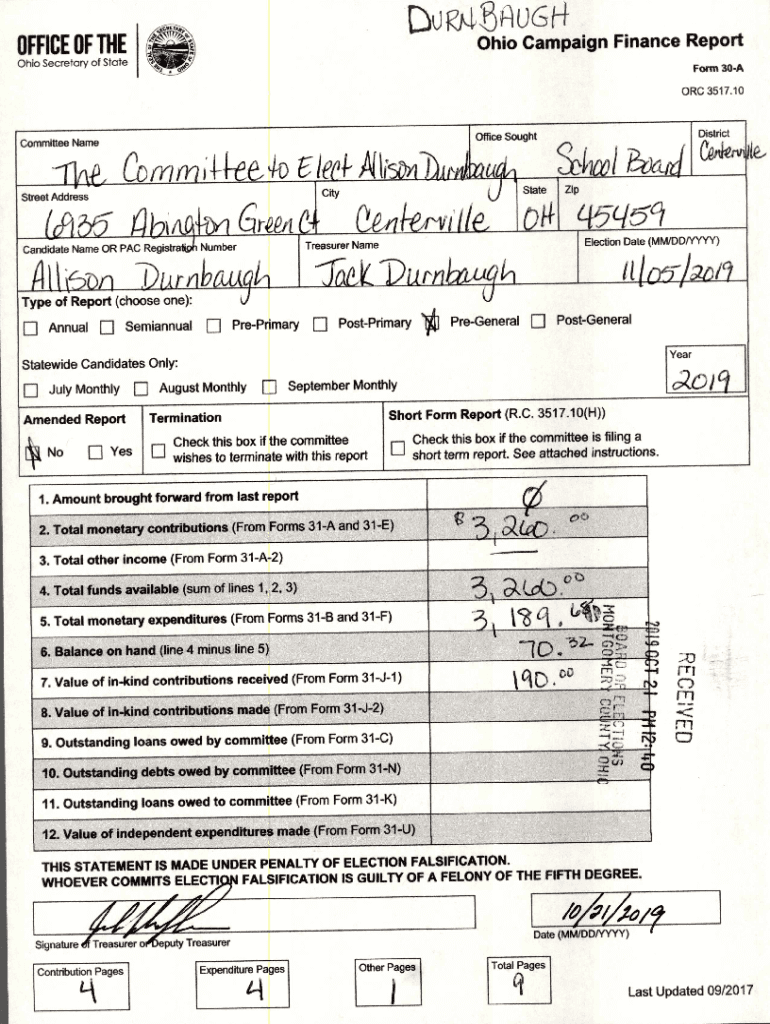 DURNBAUGH
OFFICE OF THE
Ohio Secretary of State
Ohio Campaign Finance Report
Form 30-A
ORC 3517.10
Committee Name
Office Sought
District
The Committee to Elect Allison Durnbaugh School Board Centerville
Street Address
City
State
Zip
6935 Abington Green Ct Centerville OH 45459
Candidate Name OR PAC Registration Number
Treasurer Name
Election Date (MM/DD/YYYY)
Allison Durnbaugh Jack Durnbaugh 11/05/2019
Type of Report (choose one):
Annual Semiannual Pre-Primary Post-Primary Pre-General Post-General
Statewide Candidates Only:
July Monthly August Monthly September Monthly
Year
2019
Amended Report
No Yes
Termination
Check this box if the committee
wishes to terminate with this report
Short Form Report (R.C. 3517.10(H))
Check this box if the committee is filing a
short term report. See attached instructions.
1. Amount brought forward from last report 0
2. Total monetary contributions (From Forms 31-A and 31-E) $ 3,260.00
3. Total other income (From Form 31-A-2)
4. Total funds available (sum of lines 1, 2, 3) 3,260.00
5. Total monetary expenditures (From Forms 31-B and 31-F) 3,189.68
6. Balance on hand (line 4 minus line 5) 70.32
7. Value of in-kind contributions received (From Form 31-J-1) 190.00
8. Value of in-kind contributions made (From Form 31-J-2)
9. Outstanding loans owed by committee (From Form 31-C)
10. Outstanding debts owed by committee (From Form 31-N)
11. Outstanding loans owed to committee (From Form 31-K)
12. Value of independent expenditures made (From Form 31-U)
RECEIVED
2019 OCT 21 PM 12:40
BOARD OF ELECTIONS
MONTGOMERY COUNTY, OHIO
THIS STATEMENT IS MADE UNDER PENALTY OF ELECTION FALSIFICATION.
WHOEVER COMMITS ELECTION FALSIFICATION IS GUILTY OF A FELONY OF THE FIFTH DEGREE.
10/21/2019
Signature of Treasurer or Deputy Treasurer
Date (MM/DD/YYYY)
Contribution Pages
4
Expenditure Pages
4
Other Pages
1
Total Pages
9
Last Updated 09/2017